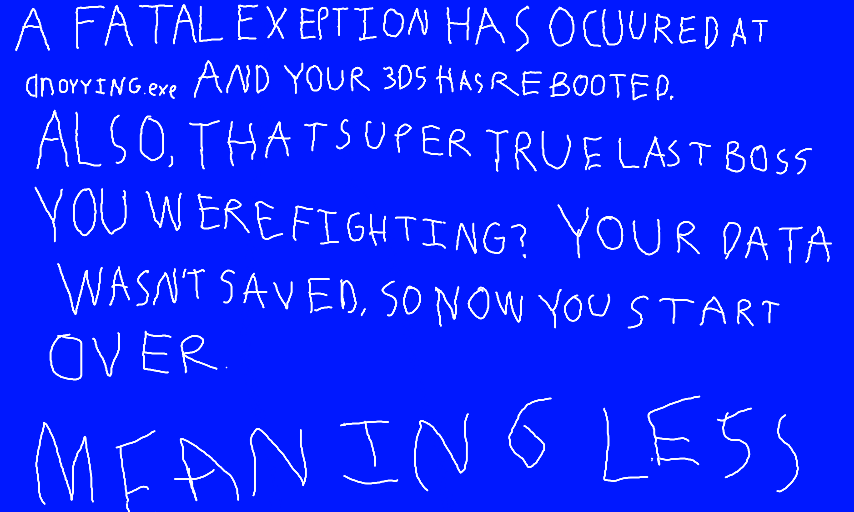 A FATAL EXEPTION HAS OCUURED AT
anoyyING.exe AND YOUR 3DS HAS REBOOTED.
ALSO, THAT SUPER TRUE LAST BOSS
YOU WERE FIGHTING? YOUR DATA
WASN'T SAVED, SO NOW YOU START
OVER.
MEANINGLESS